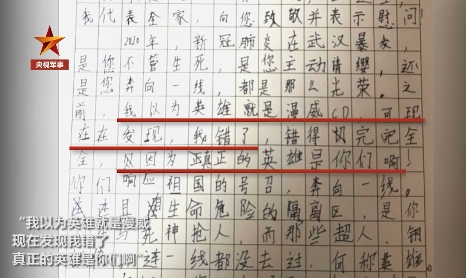 我代表全家，向您致敬并表示慰问！
2020年，新冠肺炎在武汉暴发，
是您不管生死，是您主动请缨，
是您奔向一线，都是那么光荣。之
前，我以为英雄就是漫威CD，可现
在在发现，我错了，错得极完完全
全，只因为真正的英雄是你们啊！
你们响应祖国的号召，奔向一线。
生命危险的隔离区，是
死神抢人 而那些超人、钢
一线都没去过，何称英雄
央视军事
“我以为英雄就是漫威
现在发现我错了
真正的英雄是你们啊